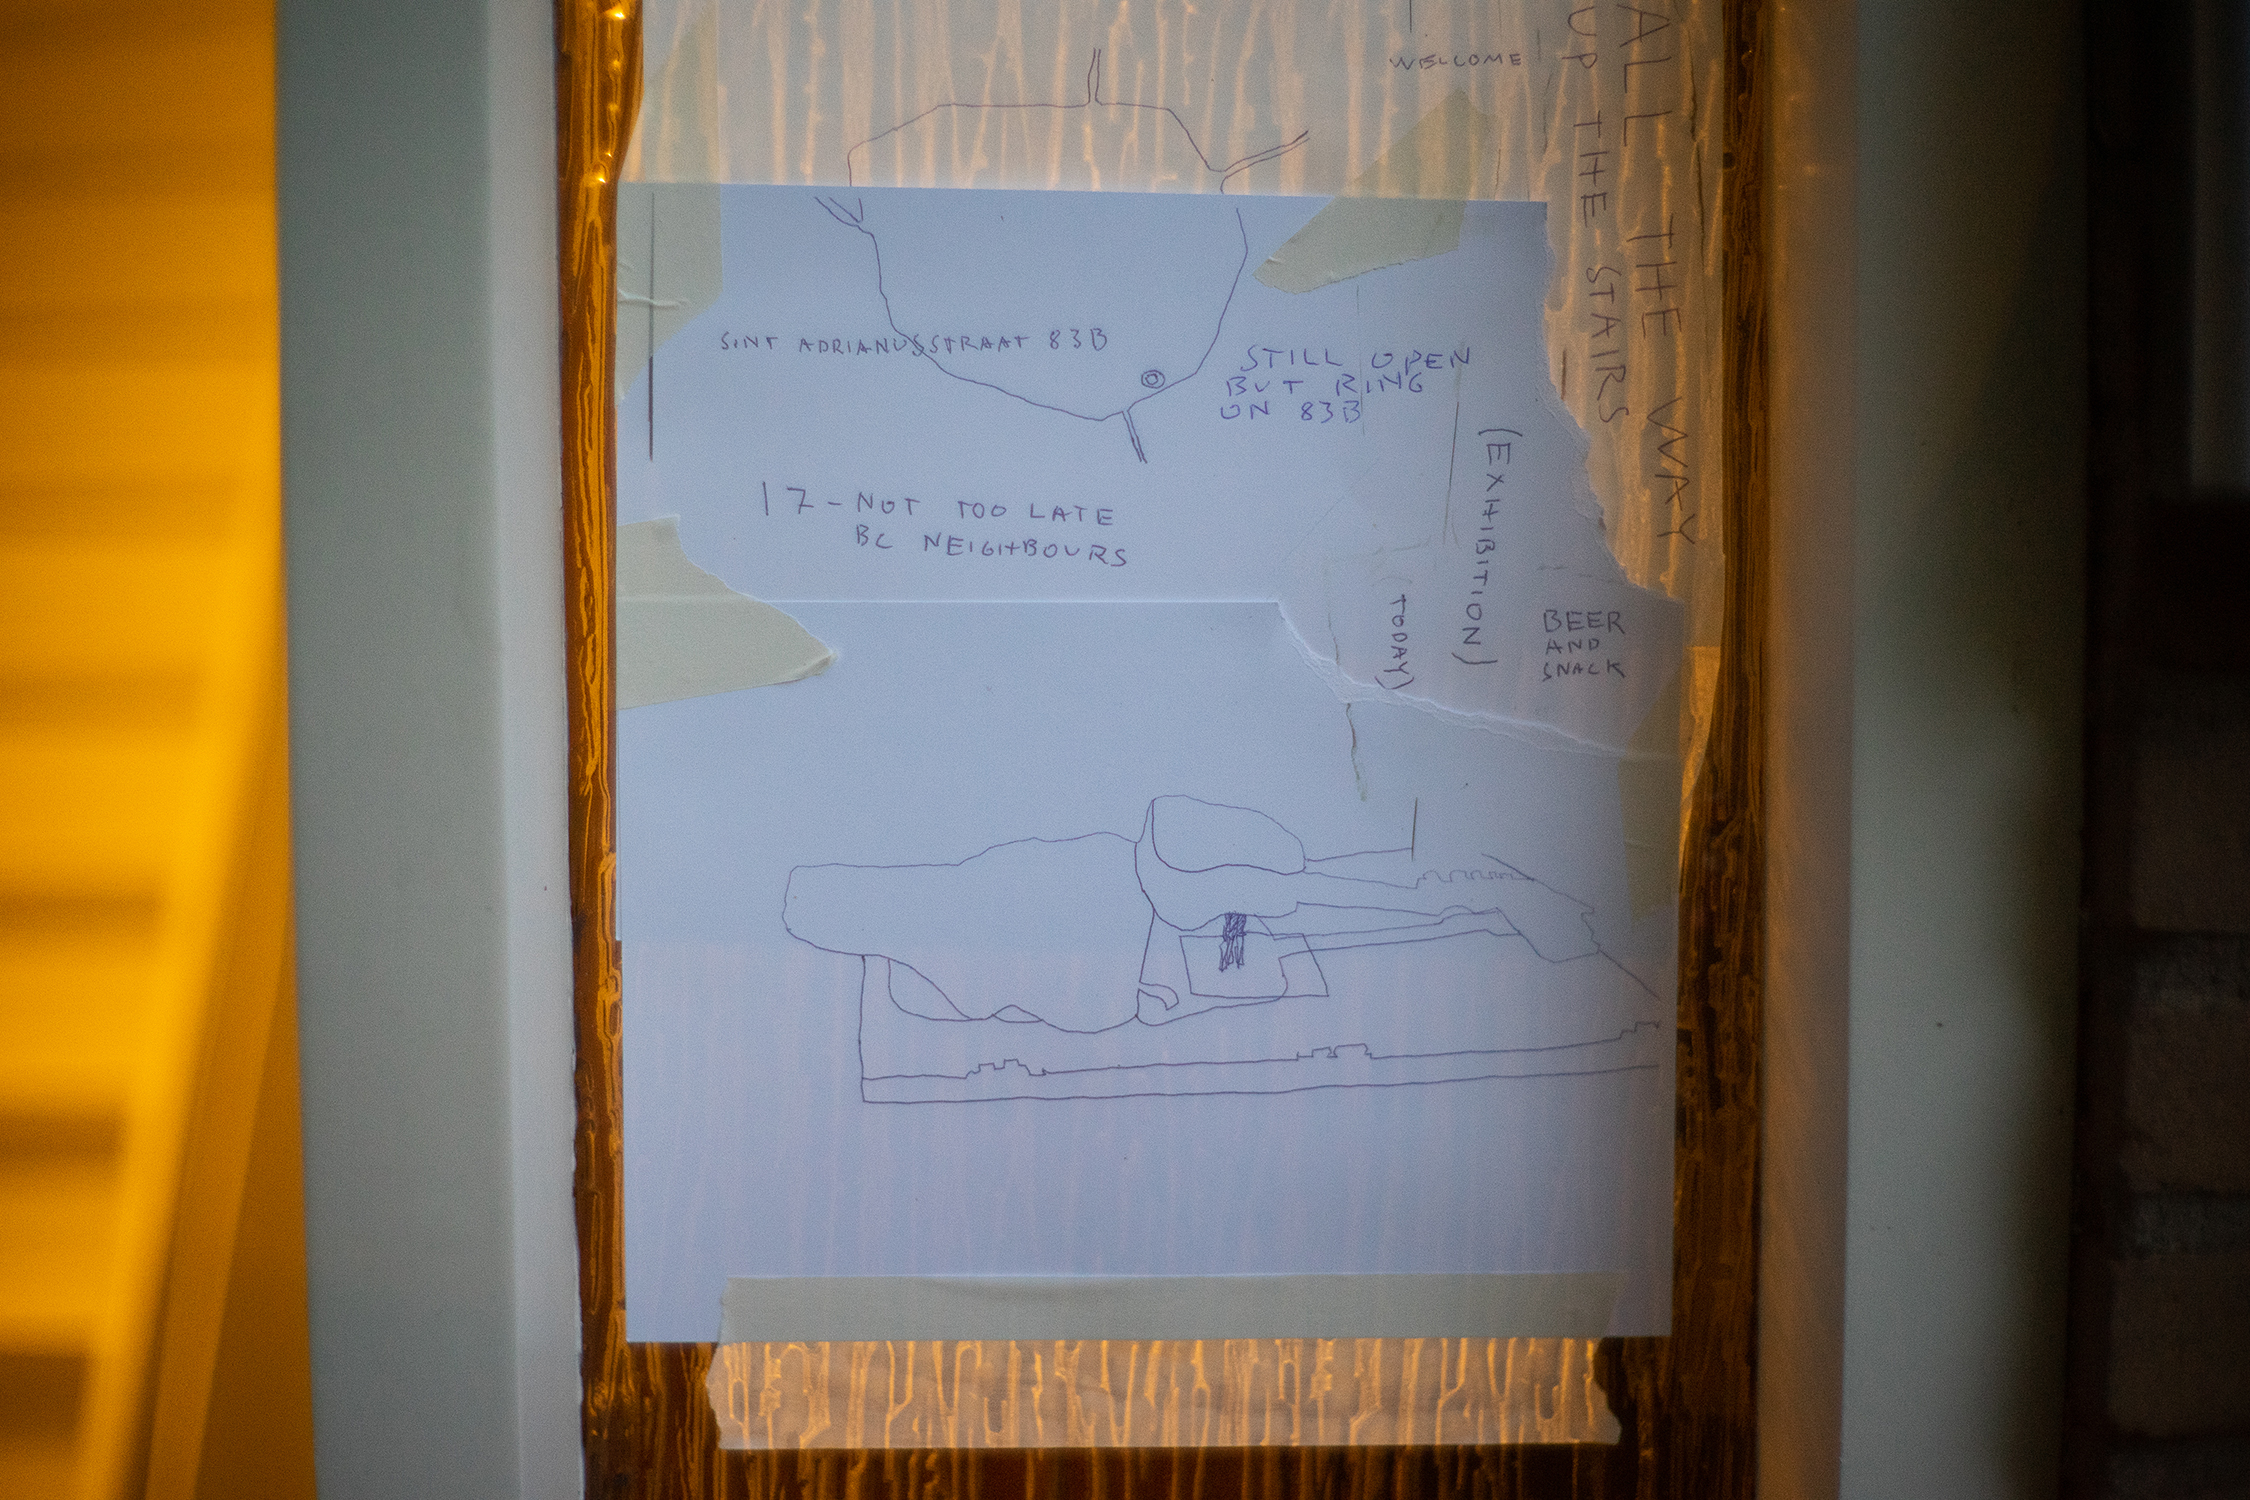 WELCOME
ALL THE WAY
UP THE STAIRS
SINT ADRIANUSSTRAAT 83B
STILL OPEN
BUT RING
ON 83B
17 - NOT TOO LATE
BC NEIGHBOURS
(EXHIBITION)
(TODAY)
BEER
AND
SNACK